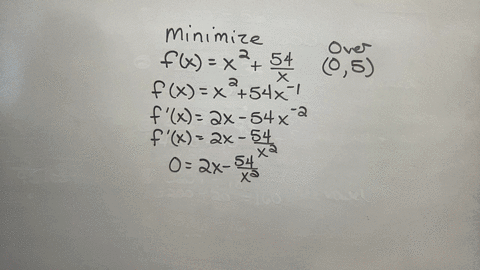 Minimize
f(x) = x² + 54/x
Over
(0,5)
f(x) = x² + 54x⁻¹
f'(x) = 2x - 54x⁻²
f'(x) = 2x - 54/x²
0 = 2x - 54/x²